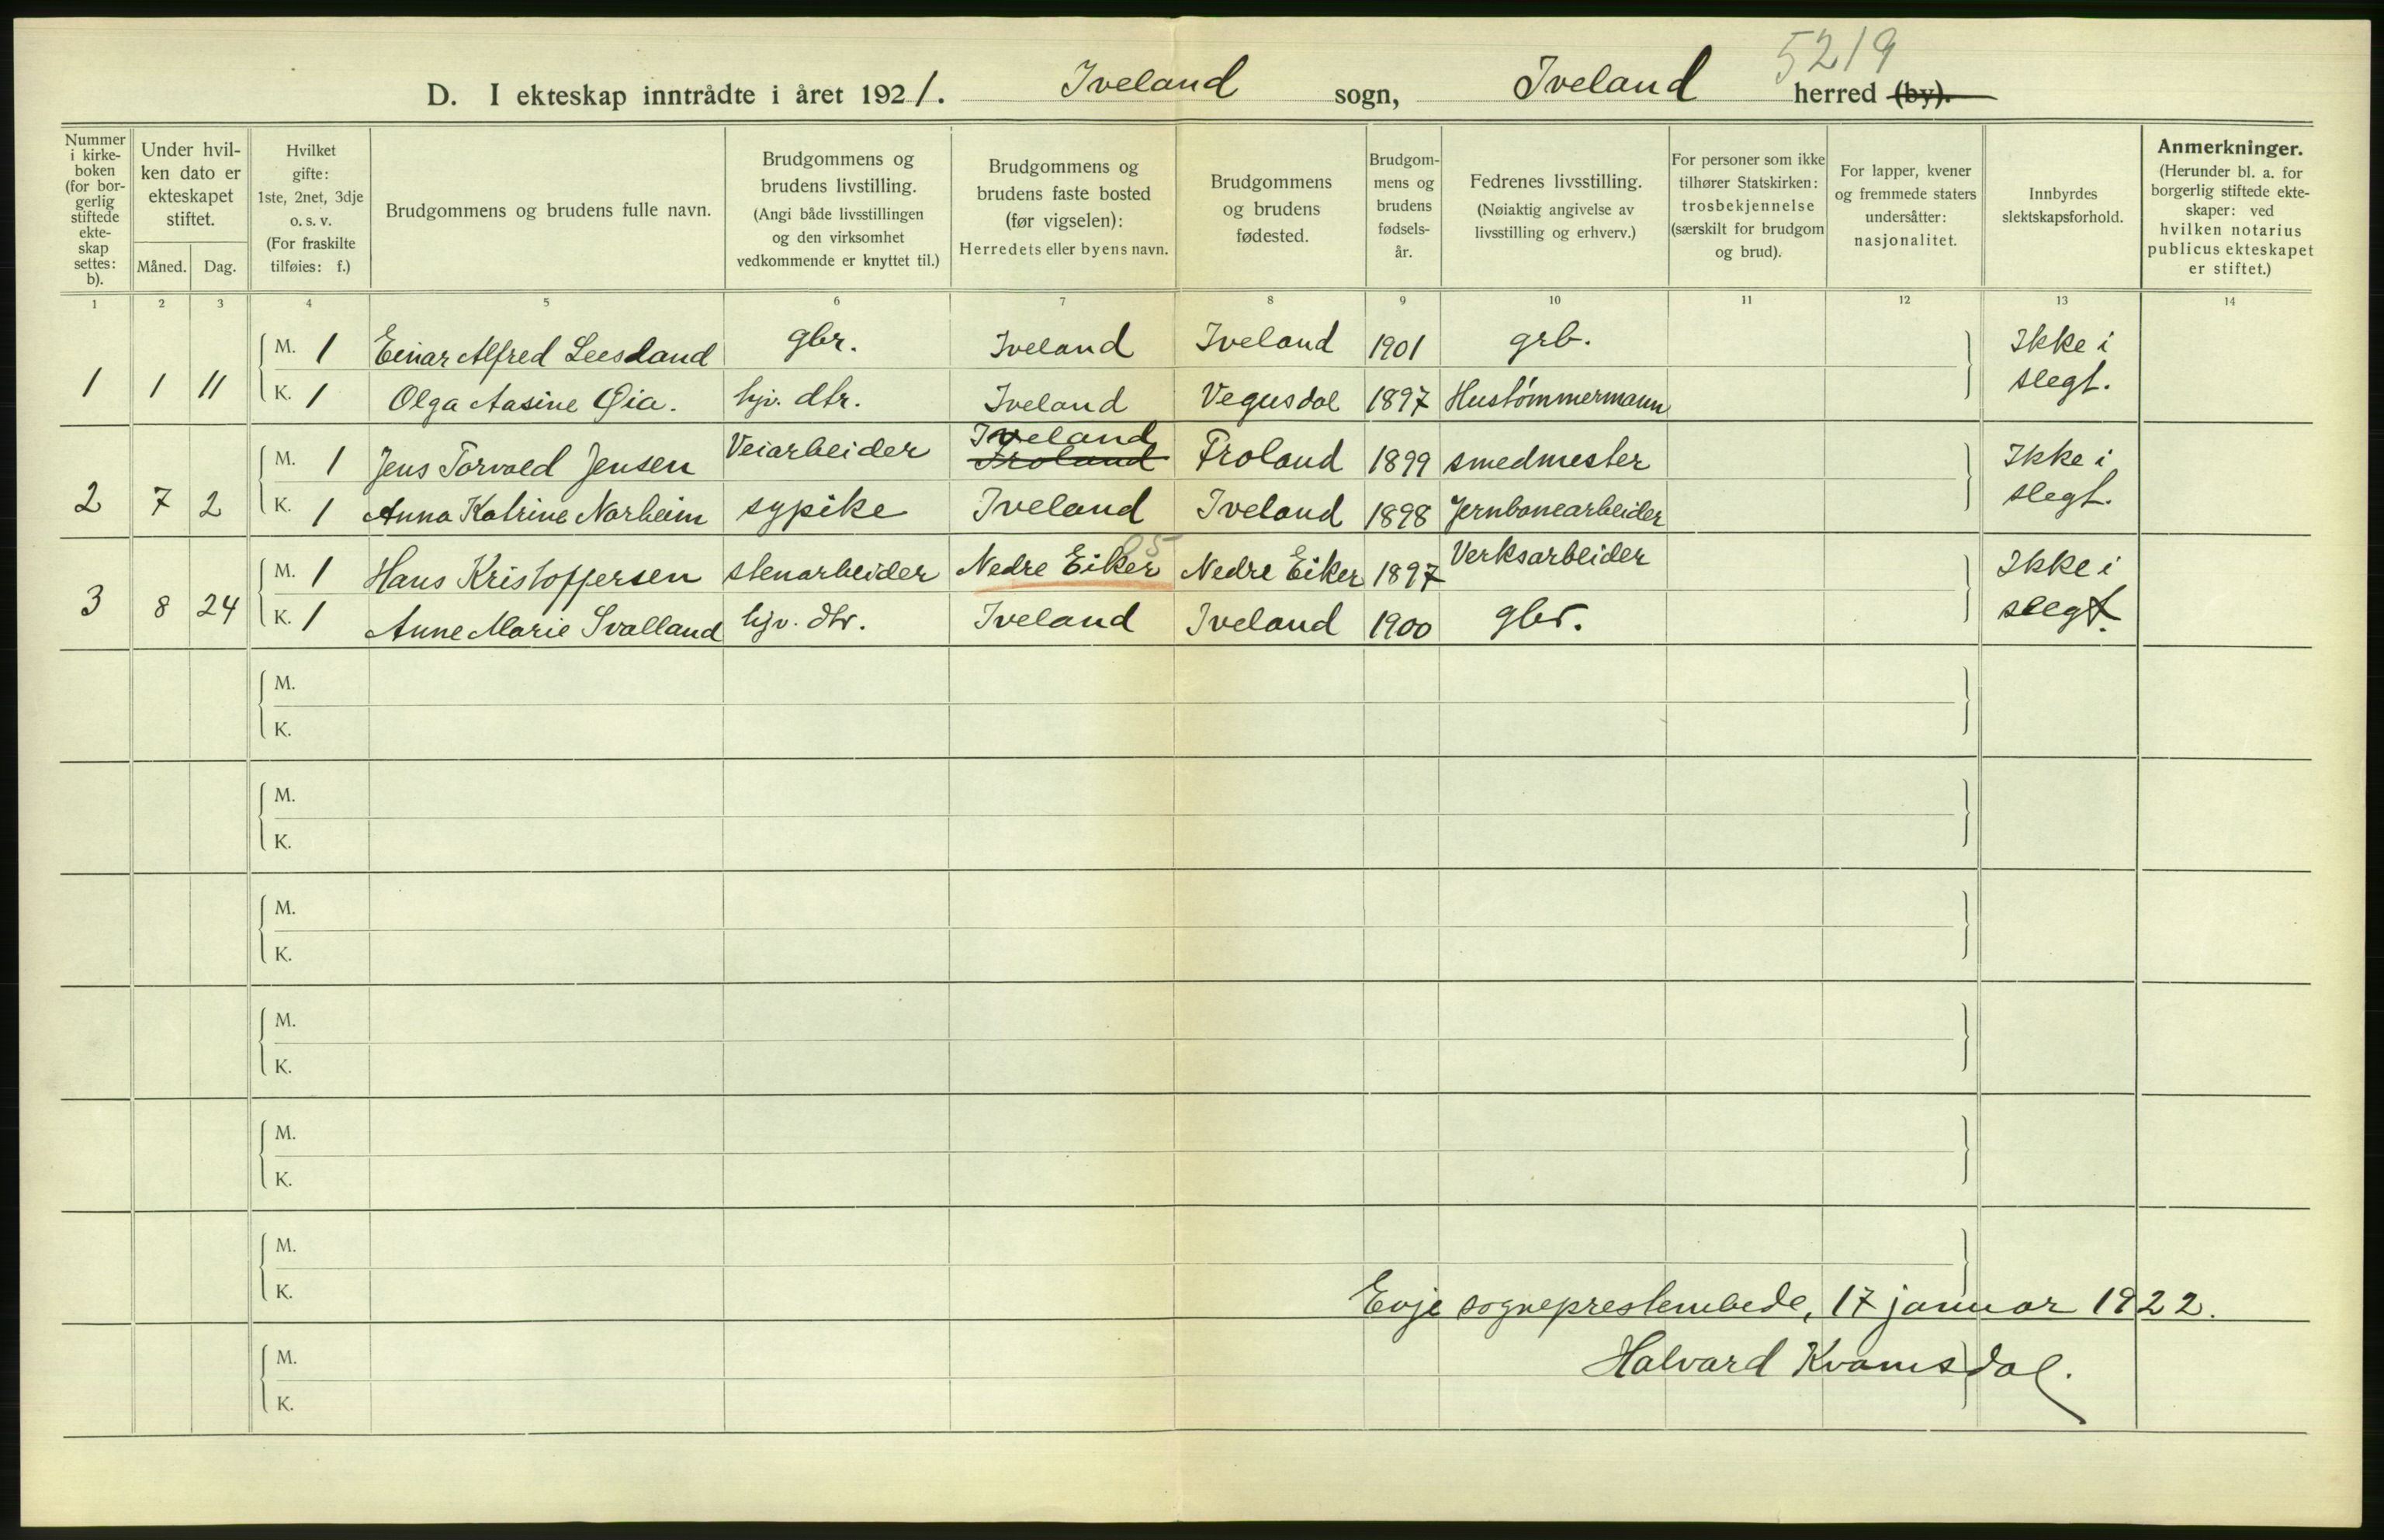 5219
D. I ekteskap inntrådte i året 1921. Iveland sogn, Iveland herred (by).
Nummer i kirkeboken (for borgerlig stiftede ekteskap settes: b).
Under hvilken dato er ekteskapet stiftet.
Måned. Dag.
Hvilket gifte: 1ste, 2net, 3dje o. s. v. (For fraskilte tilføies: f.)
Brudgommens og brudens fulle navn.
Brudgommens og brudens livstilling. (Angi både livsstillingen og den virksomhet vedkommende er knyttet til.)
Brudgommens og brudens faste bosted (før vigselen): Herredets eller byens navn.
Brudgommens og brudens fødested.
Brudgommens og brudens fødselsår.
Fedrenes livsstilling. (Nøiaktig angivelse av livsstilling og erhverv.)
For personer som ikke tilhører Statskirken: trosbekjennelse (særskilt for brudgom og brud).
For lapper, kvener og fremmede staters undersåtter: nasjonalitet.
Innbyrdes slektskapsforhold.
Anmerkninger. (Herunder bl. a. for borgerlig stiftede ekteskaper: ved hvilken notarius publicus ekteskapet er stiftet.)
1 2 3 4 5 6 7 8 9 10 11 12 13 14
M. 1 Einar Alfred gbr. Iveland Iveland 1901 grb. Ikke i
1 1 11 K. 1 Olga Aasine Øia. hjv. dtr. Iveland Vegusdal 1897 Hustømmermann slegt.
Iveland
M. 1 Jens Torvald Jensen Veiarbeider Froland Froland 1899 smedmester Ikke i
2 7 2 K. 1 Anna Katrine Norheim sypike Iveland Iveland 1898 Jernbanearbeider slegt.
05
M. 1 Hans Kristoffersen stenarbeider Nedre Eiker Nedre Eiker 1897 Verksarbeider Ikke i
3 8 24 K. 1 Anne Marie Svalland hjv. dtr. Iveland Iveland 1900 gbr. slegt.
M.
K.
M.
K.
M.
K.
M.
K.
M.
K.
M.
K. Evje sogneprestembede, 17 januar 1922.
M. Halvard Kvamsdal.
K.